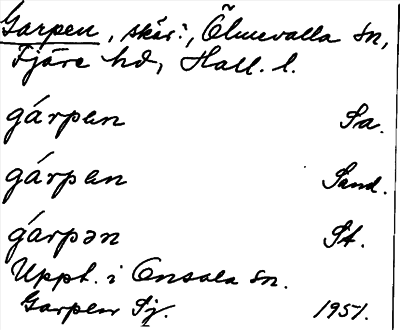 Garpen, skär:, Ölmevalla sn,
Fjäre hd, Hall. l.
gárpen Sa.
gárpen Sand.
gárpən St.
Uppt. i Onsala sn.
Garpen Sj. 1951.